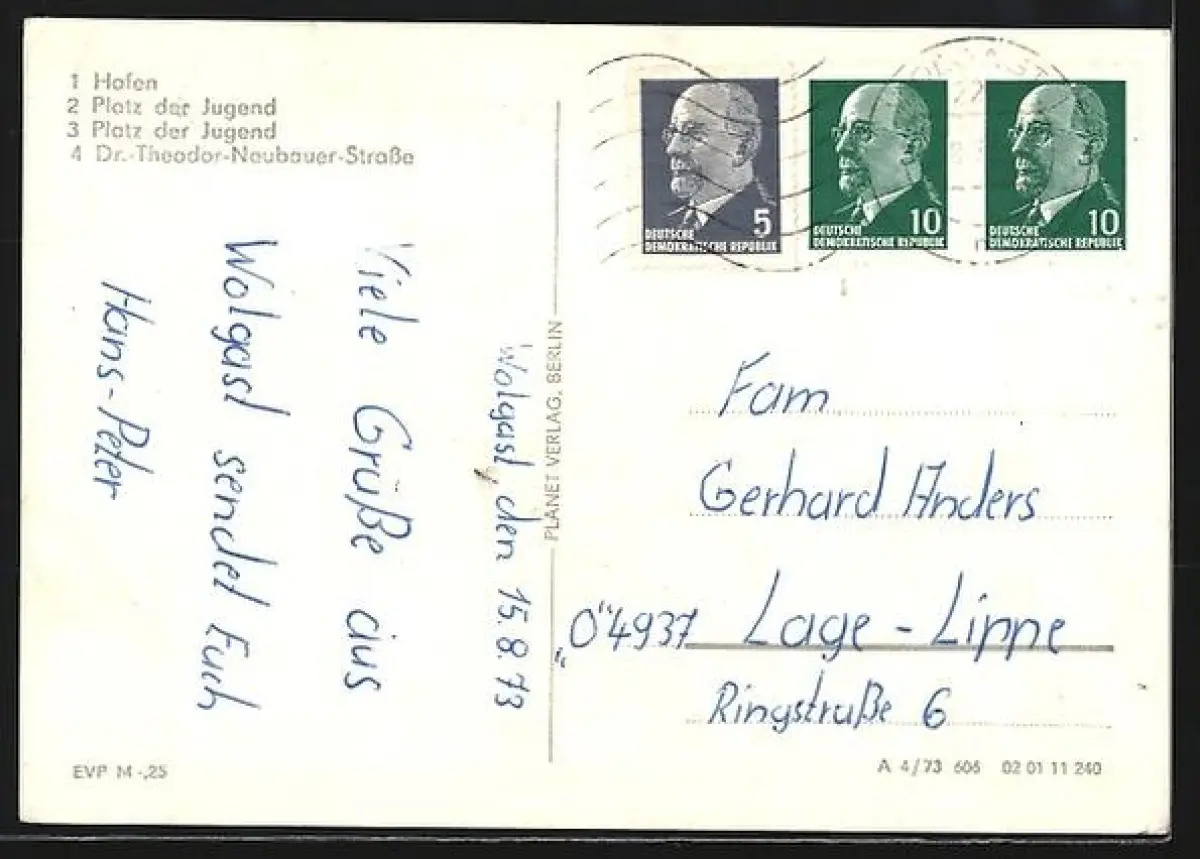 1 Hafen
2 Platz der Jugend
3 Platz der Jugend
4 Dr.-Theodor-Neubauer-Straße
5
DEUTSCHE
DEMOKRATISCHE REPUBLIK
10
DEUTSCHE
DEMOKRATISCHE REPUBLIK
10
DEUTSCHE
DEMOKRATISCHE REPUBLIK
Wolgast, den 15.8.73
Viele Grüße aus
Wolgast sendet Euch
Hans-Peter
PLANET VERLAG, BERLIN
Fam
Gerhard Anders
„Ö“4937 Lage - Lippe
Ringstraße 6
EVP M -,25
A 4/73 606 02 01 11 240